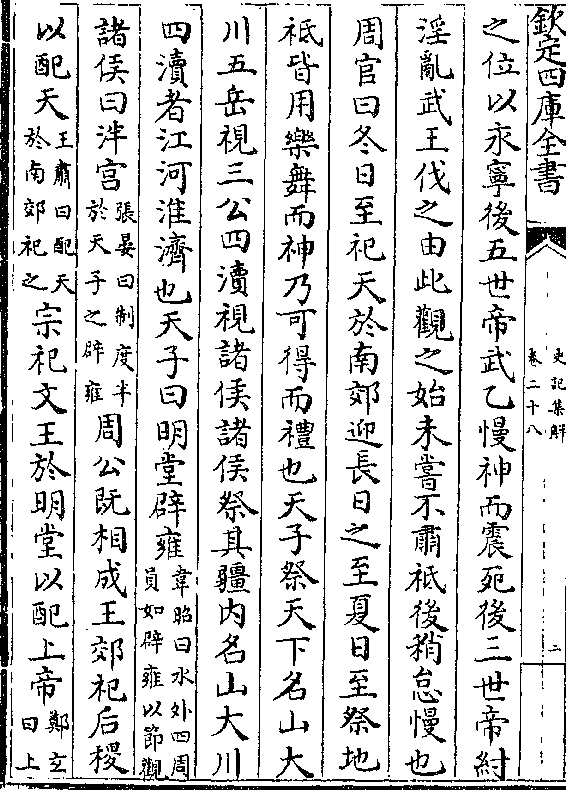 欽定四庫全書
史記集解
卷二十八
二
之位以永寧後五世帝武乙慢神而震死後三世帝紂
淫亂武王伐之由此觀之始未嘗不肅祗後稍怠慢也
周官曰冬日至祀天於南郊迎長日之至夏日至祭地
祗皆用樂舞而神乃可得而禮也天子祭天下名山大
川五岳視三公四瀆視諸侯諸侯祭其疆内名山大川
四瀆者江河淮濟也天子曰明堂辟雍韋昭曰水外四周員如辟雍以節觀
諸侯曰泮宮張晏曰制度半於天子之辟雍周公既相成王郊祀后稷
以配天王肅曰配天於南郊祀之宗祀文王於明堂以配上帝鄭玄曰上